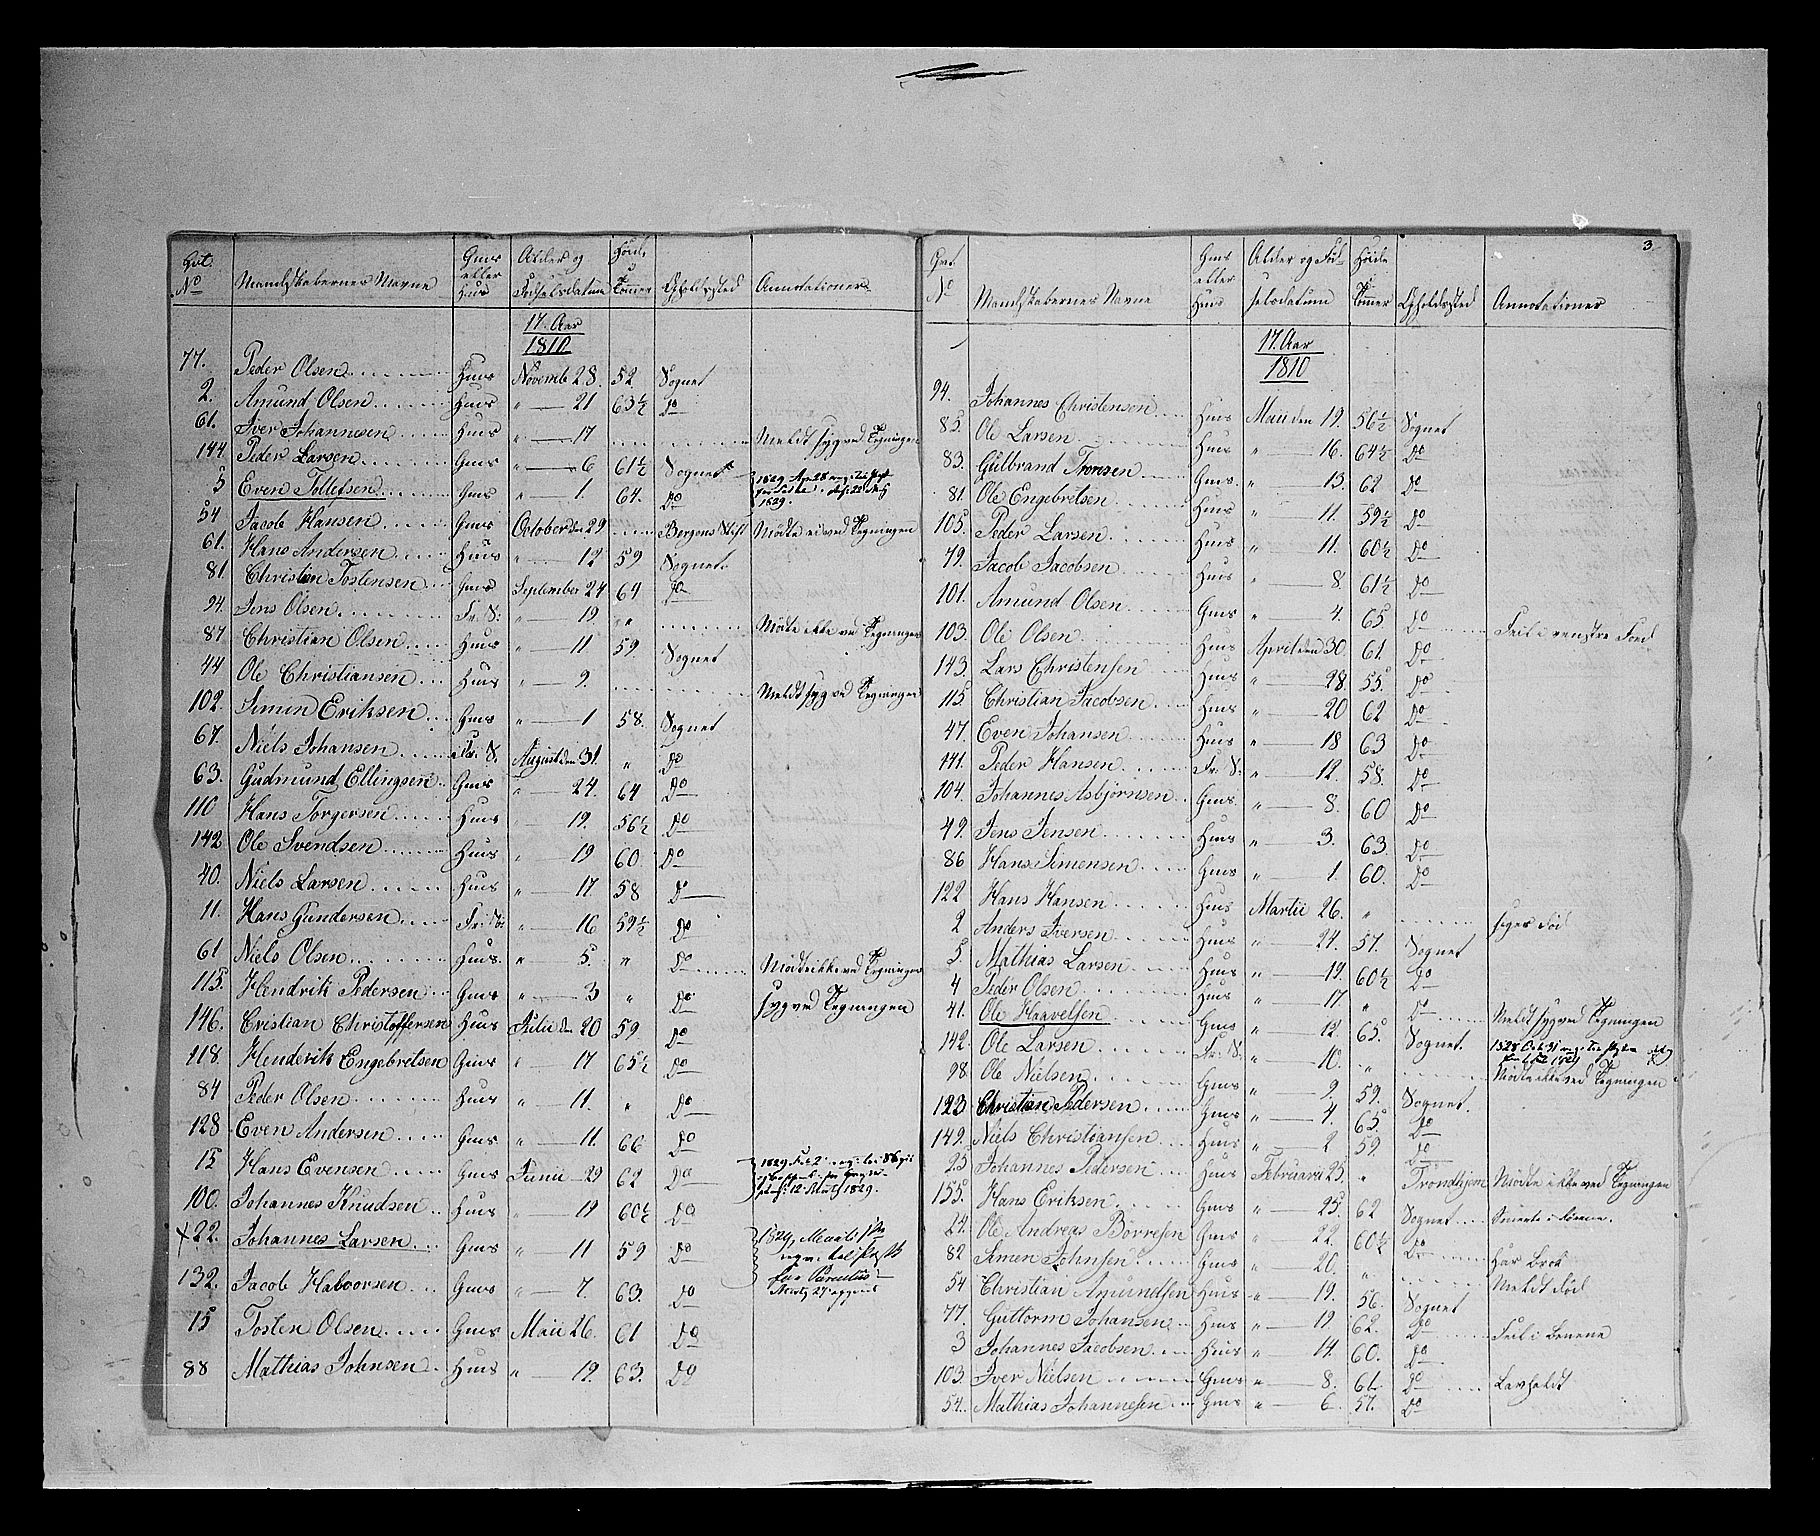 No Mandskabernes Navne Huus eller Alder og Fødselsdatum Høide Tommer Opholdssted Annotationer
17. Aar
1810
77. Peder Olsen Huus Novemb 28. 52 Sognet
2. Amund Olsen Huus " 21 63½ Do
61. Iver Johannesen Huus " 17 Meldt syg ved Tegningen
144 Peder Larsen Gaus " 6 61½ Sognet
5 Even Tollefsen Gaus " 1. 67. Do 1829 1829.
54 Jacob Hansen Gaus October den 29 Bergens Stift Mødte ei ved Tegningen
61. Hans Andersen Huus " 12 59 Sognet
81. Christian Tostensen Gaus September 24 64 Do
94. Jens Olsen Fr. S: " 19. " Mødte ikke ved Tegningen
87. Christian Olsen Huus " 11 59. Sognet
44 Ole Christiansen Huus " 9. Meldt syg ved Tegningen
102. Simen Eriksen Huus " 1 58. Sognet
67. Niels Johansen Fr. S. August den 31. " Do
63. Gudmund Ellingsen Gaus " 24. 64 Do
110 Hans Torgersen Huus " 19. 56½ Do
142 Ole Svendsen Huus " 19 60. Do
40. Niels Larsen Huus " 17 58 Do
11. Hans Gundersen Fr: S: " 16 59½ Do
61 Niels Olsen Huus. " 5. " Do Mødte ikke ved Tegningen
115. Hendrik Pedersen Gaus " 3 " Do syg ved Tegningen
146. Cristian Christoffersen Huus Julii den 20 59. Do
118. Henderik Engebretsen Gaus " 17 65½ Do
84 Peder Olsen Huus " 11. " Do
128 Even Andersen Gaus " 11. 66 Do
15 Hans Evensen Gaus Junii 29 62 Do 1829 1829.
100. Johannes Knudsen Huus " 19 60½ Do
22. Johannes Larsen Gaus " 11 59 Do 1829
132. Jacob Haboorsen Gaus " 7. 63. Do
15 Tosten Olsen Gaus Maii 26. 61 Do
88 Mathias Johnsen Huus " 19. 63. Do
3
No Mandskabernes Navne Huus Alder og Fødselsdatum Høide Tommer Opholdssted Annotationer
17. Aar
1810
94. Johannes Christensen Huus Maii den 19. 56½ Sognet
85. Ole Larsen Huus " 16. 64½ Do
83. Gulbrand Tronsen Gaus. " 13. 62 Do
81. Ole Engebretsen Huus " 11. 59½ Do
105. Peder Larsen Huus " 11. 60½ Do
79. Jacob Jacobsen Huus " 8. 61½ Do
101. Amund Olsen Gaus " 4. 65 Do Feil i venstre Fod
103. Ole Olsen Huus April den 30. 61. Do
143. Lars Christensen Huus " 28. 55. Do
115. Christian Jacobsen Huus " 20 62 Do
47. Even Johansen Huus " 18 63 Do
141. Peder Hansen Fr. S: " 12. 58. Do
104. Johannes Asbjørnsen Gaus. " 8. 60 Do
49. Jens Jensen Huus " 3. 63. Do
86 Hans Simensen Huus " 1. 60. Do
122 Hans Hansen Huus Martii 26. " siges død
2 Anders Iversen Huus " 24. 57. Sognet
5. Mathias Larsen Huus " 19. 60½ Do
4 Peder Olsen Huus " 17 " Do Meldt syg ved Tegningen
41. Ole Haavelsen Gaus " 12. 65. Sognet. 1828
142. Ole Larsen Fr. S: " 10. " Mødte ikke ved Tegningen
98. Ole Nielsen Gaus " 9. 59. Sognet.
123 Christian Pedersen Gaus " 4. 65. Do
149. Niels Christiansen Huus " 2 59. Do
25 Johannes Pedersen Huus Februarii 25. " Trondhjem Mødte ikke ved Tegningen
155. Hans Eriksen Gaus " 25 62 Sognet
14. Ole Andreas Børresen Gaus " 22. 60½ Do Har Brok
82 Simen Johnsen Huus " 20. " Meldt død
54 Christian Amundsen Huus " 19. 56. Sognet
77. Guttorm Johansen Huus " 19 62. Do Feil i Benene
3 Johannes Jacobsen Huus " 14. 60. Do
103. Iver Nielsen Gaus " 8. 61. Do Lavhaldt
54. Mathias Johannesen Gaus " 6. 57. Do